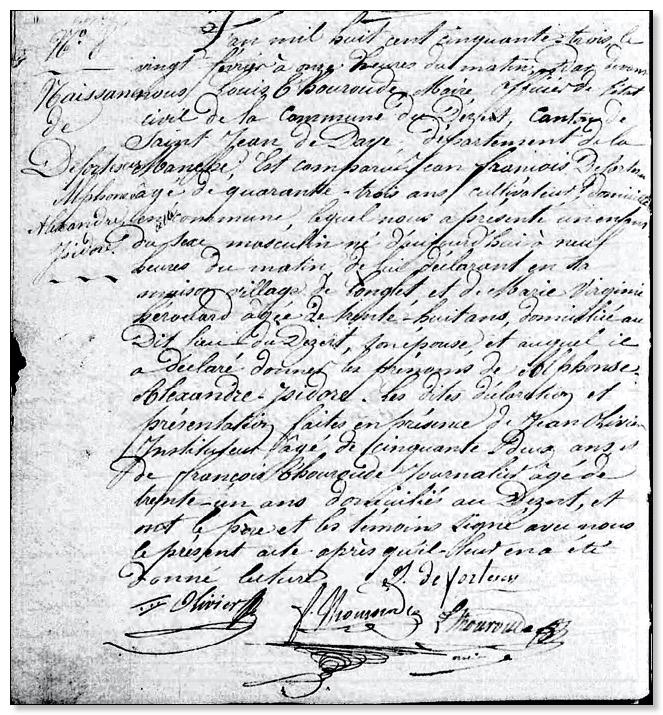 L'an mil huit cent cinquante-trois, le
vingt fevrier à onze heures du matin par devant
nous, Louis Thouroude Maire officier de l'état
civil de la Commune du Dézert, Canton de
Saint Jean de Daye, département de la
Manche, Est comparu Jean françois Deforters
agé de quarante-trois ans, cultivateur, domicilié
en Commune lequel nous a présenté un enfant
du sexe masculin né d'aujourd'hui à neuf
heures du matin de lui déclarant en sa
maison village de et de Marie Virginie
âgée de trente-huit ans, domiciliée au
Dit lieu du Dézert, son épouse et auquel il
a déclaré donner les prénoms de Alphonse
Alexandre-Isidore. Les dites déclaration et
présentation faites en présence de Jean Olivier
Instituteur âgé de Cinquante Deux ans et
de françois Thouroude Journalier âgé de
trente-un ans domiciliés au Dézert, et
ont le père et les témoins signé avec nous
le présent acte après qu'il leur en a été
donné lecture
N.º
Naissance
de
Alphonse
Alexandre
Isidore.
Olivier
Thouroude
Thouroude